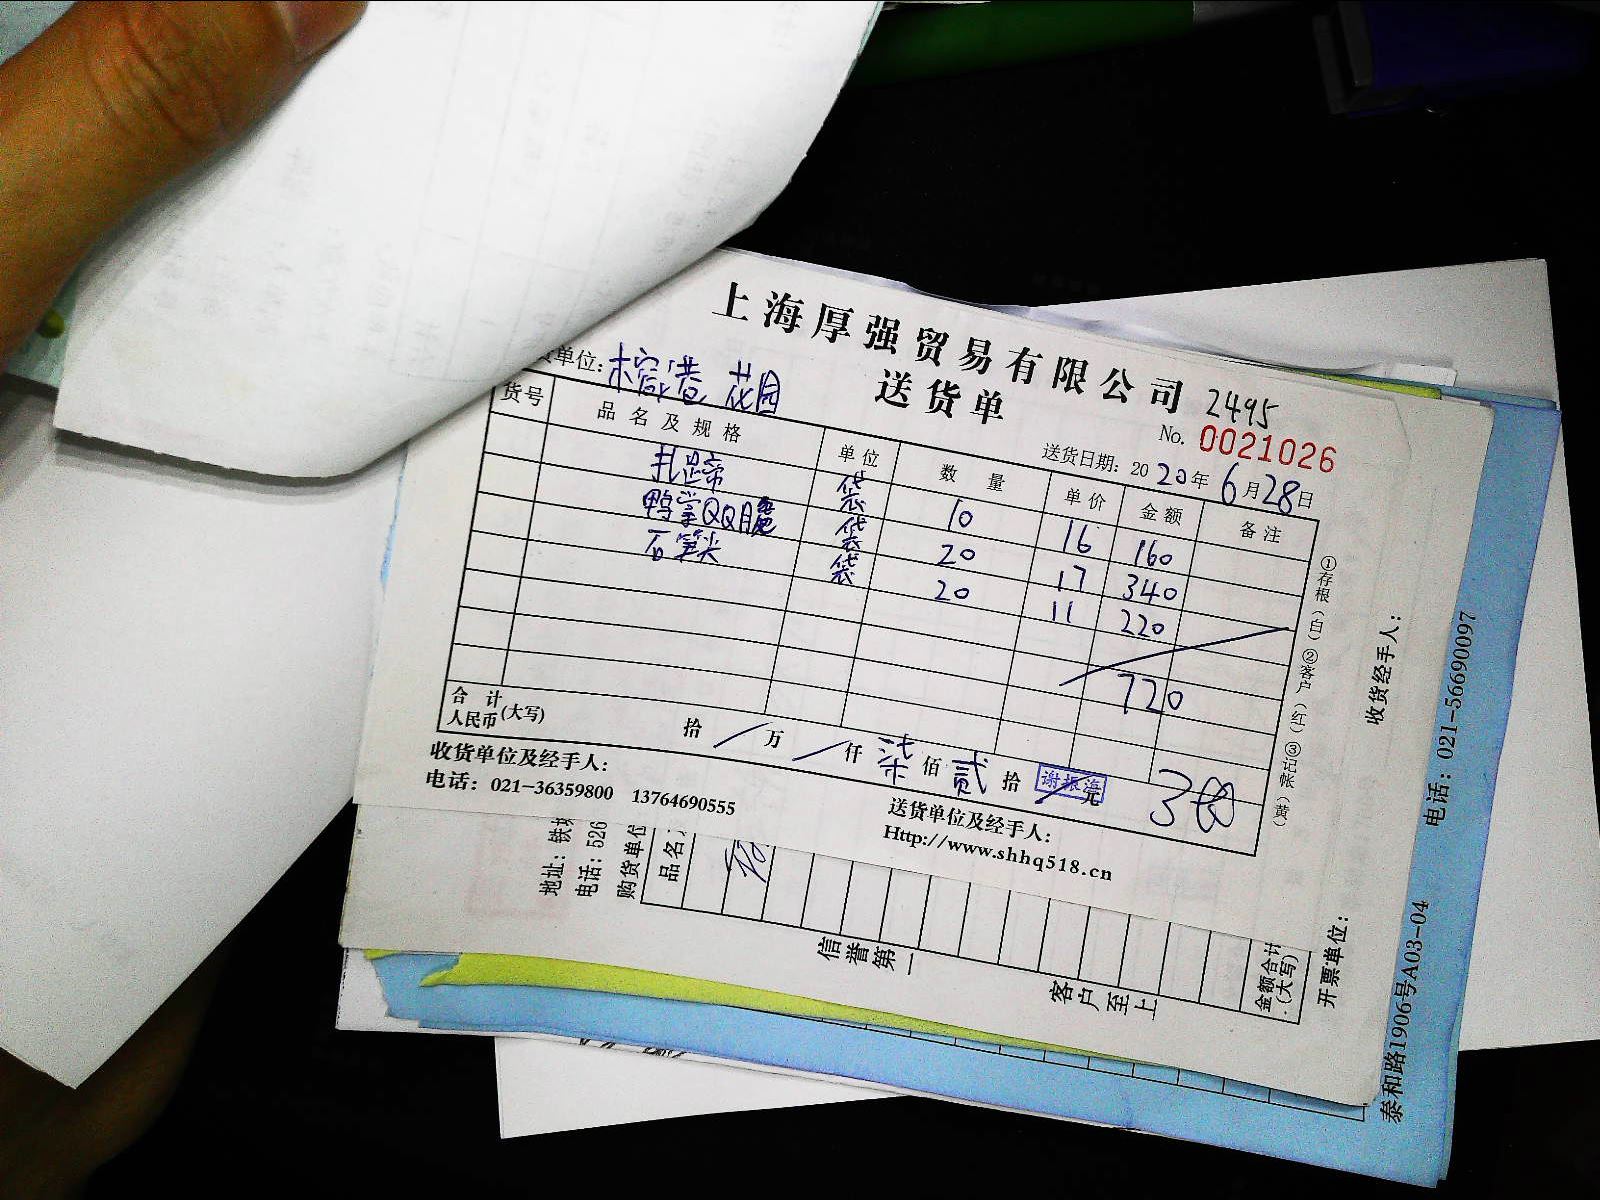 上海厚强贸易有限公司
送货单
2495
No. 0021026
货单位: 榕港花园
送货日期: 2020年6月28日
货号 品名及规格 单位 数量 单价 金额 备注
扎思帝 袋 10 16 160
鸭掌QQ腿 袋 20 17 340
石笋尖 袋 20 11 220
720
合计人民币(大写) 拾/万/仟柒佰贰拾 元
谢振海
收货单位及经手人:
送货单位及经手人:
电话: 021-36359800 13764690555
Http://www.shhq518.cn
①存根(白)②客户(红)③记帐(黄)
收货经手人:
电话: 021-56690097
泰和路1906号A03-04
开票单位:
金额合计
(大写)
地址: 铁
电话: 526
购货单位
品名
信誉第一
客户至上